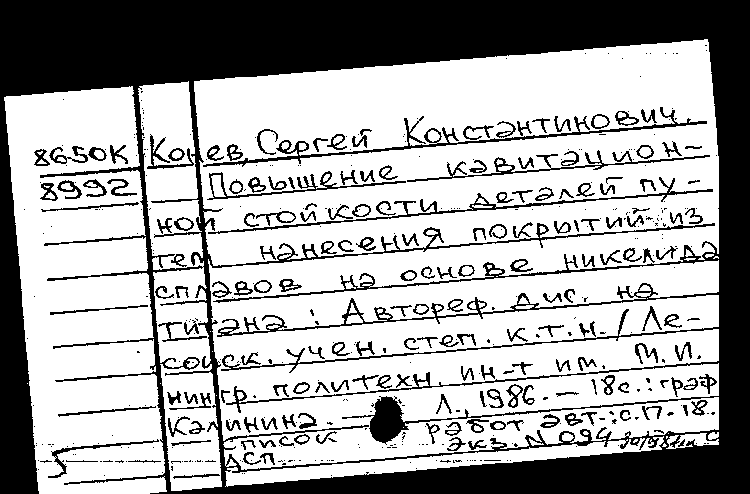 8650К Конев, Сергей Константинович.
8992 Повышение кавитацион-
ной стойкости деталей пу-
тем нанесения покрытий из
сплавов на основе никелида
титана : Автореф. дис. на
соиск. учен. степ. к.т.н. / Ле-
нингр. политехн. ин-т им. М.И.
Калинина. – Л., 1986. – 18с.: граф
список работ авт.: с.17-18.
ДСП. экз. N 094